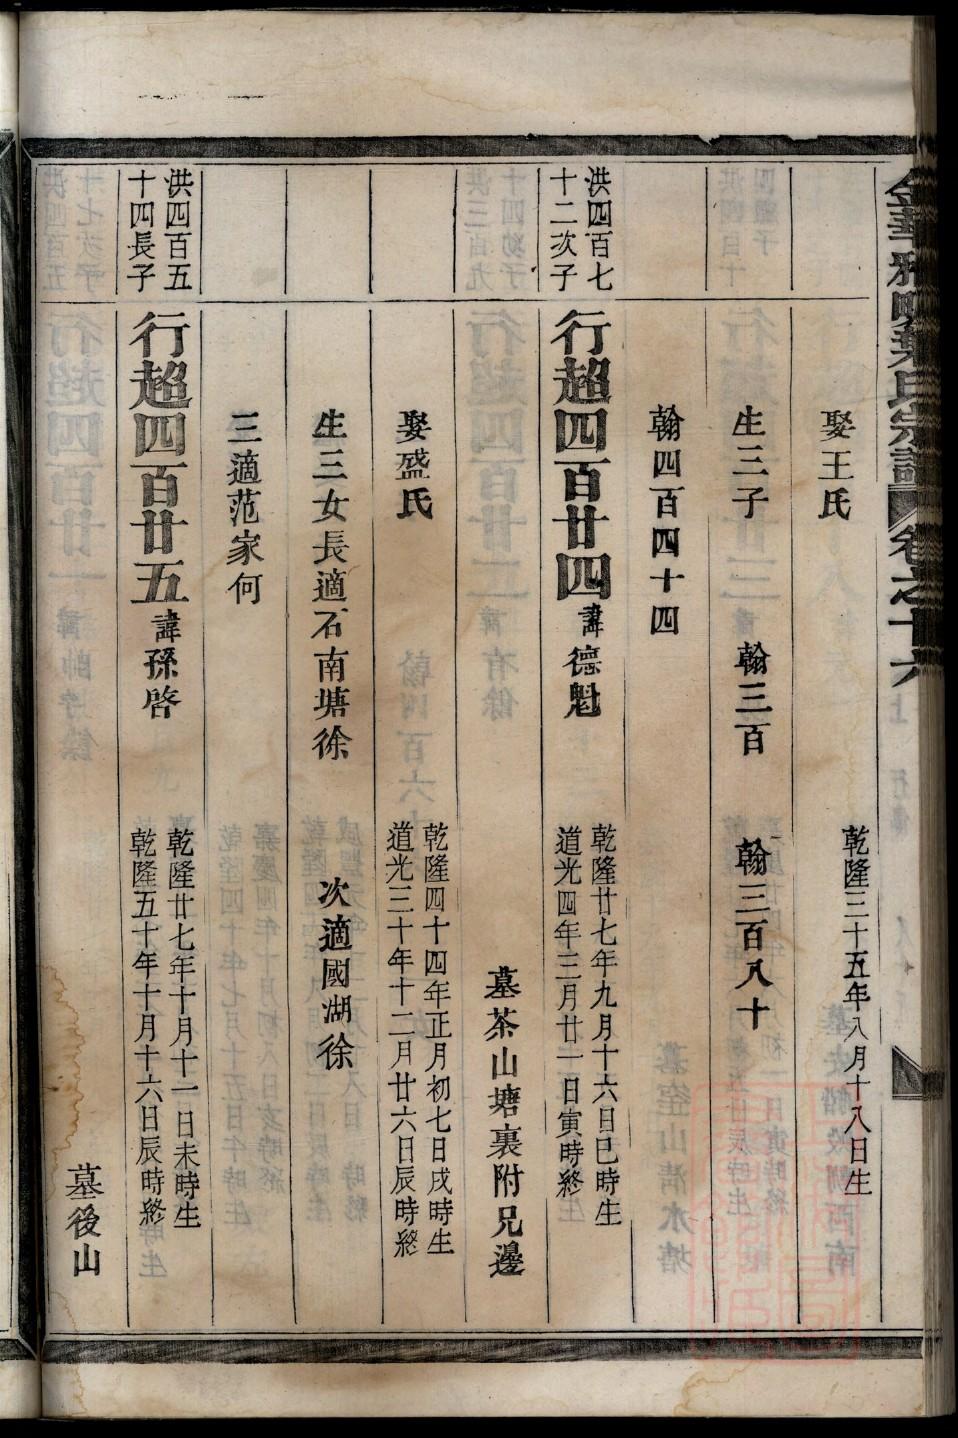 娶王氏
乾隆三十五年八月十八日生
生三子 翰三百 翰三百八十
翰四百四十四
洪四百七
十二次子
行超四百廿四 諱德魁
乾隆廿七年九月十六日巳時生
道光四年三月廿一日寅時終
墓茶山塘裏附兄邊
娶盛氏
乾隆四十四年正月初七日戌時生
道光三十年十二月廿六日辰時終
生三女長適石南塘徐 次適國湖徐
三適范家何
洪四百五
十四長子
行超四百廿五 諱孫啓
乾隆廿七年十月十一日未時生
乾隆五十年十月十六日辰時終
墓後山